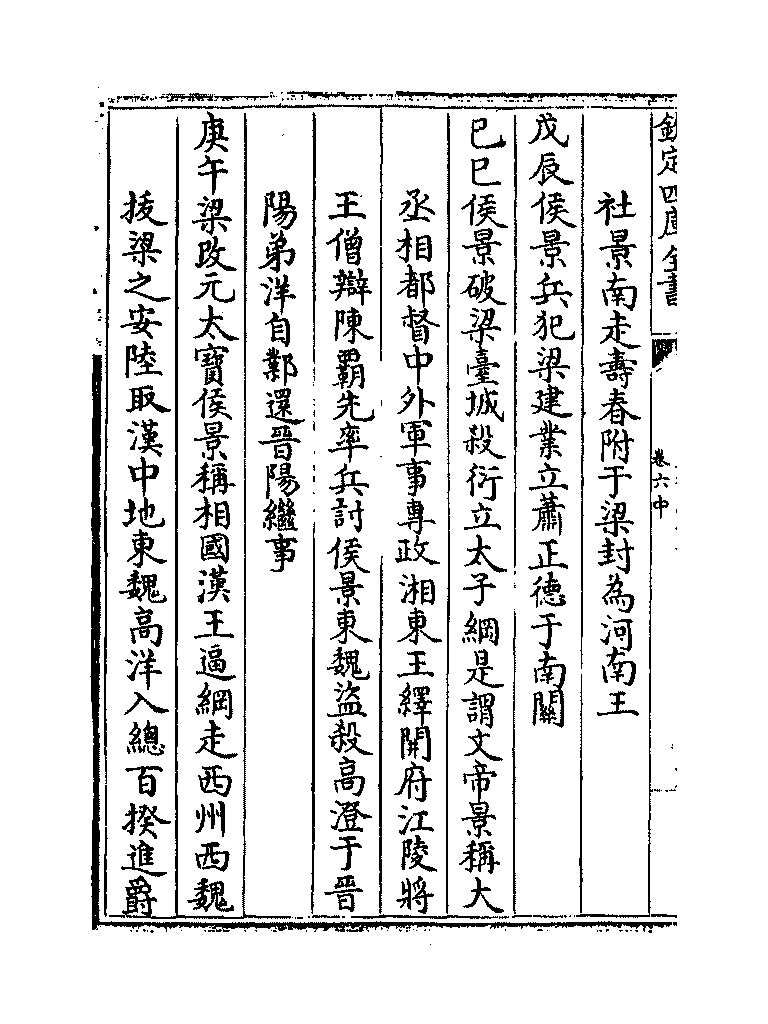 欽定四庫全書
卷六中
社景南走壽春附于梁封為河南王
戊辰侯景兵犯梁建業立蕭正德于南闕
己巳侯景破梁臺城殺衍立太子綱是謂文帝景稱大
丞相都督中外軍事專政湘東王繹開府江陵將
王僧辯陳霸先率兵討侯景東魏盜殺高澄于晉
陽弟洋自鄴還晉陽繼事
庚午梁改元太寶侯景稱相國漢王逼綱走西州西魏
拔梁之安陸取漢中地東魏高洋入總百揆進爵